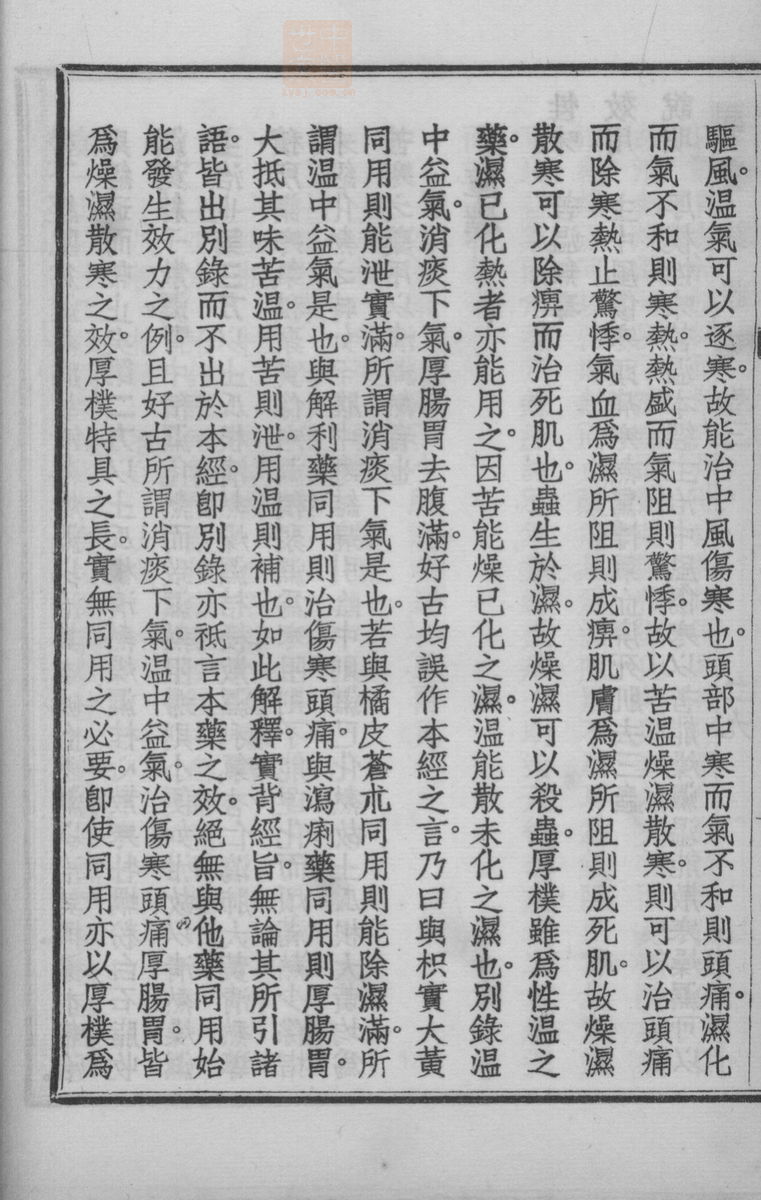 驅風。温氣可以逐寒。故能治中風傷寒也。頭部中寒而氣不和則頭痛。濕化
而氣不和則寒熱。熱盛而氣阻則驚悸。故以苦温燥濕散寒。則可以治頭痛
而除寒熱止驚悸。氣血爲濕所阻則成痹。肌膚爲濕所阻則成死肌。故燥濕
散寒可以除痹而治死肌也。蟲生於濕。故燥濕可以殺蟲。厚樸雖爲性温之
藥。濕已化熱者亦能用之。因苦能燥已化之濕。温能散未化之濕也。别錄温
中益氣。消痰下氣。厚腸胃去腹滿。好古均誤作本經之言。乃曰與枳實大黃
同用則能泄實滿。所謂消痰下氣是也。若與橘皮蒼朮同用則能除濕滿。所
謂温中益氣是也。與解利藥同用則治傷寒頭痛。與瀉痢藥同用則厚腸胃。
大抵其味苦温。用苦則泄。用温則補也。如此解釋。實背經旨。無論其所引諸
語。皆出别錄而不出於本經。卽别錄亦祇言本藥之效。絕無與他藥同用始
能發生效力之例。且好古所謂消痰下氣。温中益氣。治傷寒頭痛厚腸胃。皆
爲燥濕散寒之效。厚樸特具之長。實無同用之必要。卽使同用亦以厚樸爲